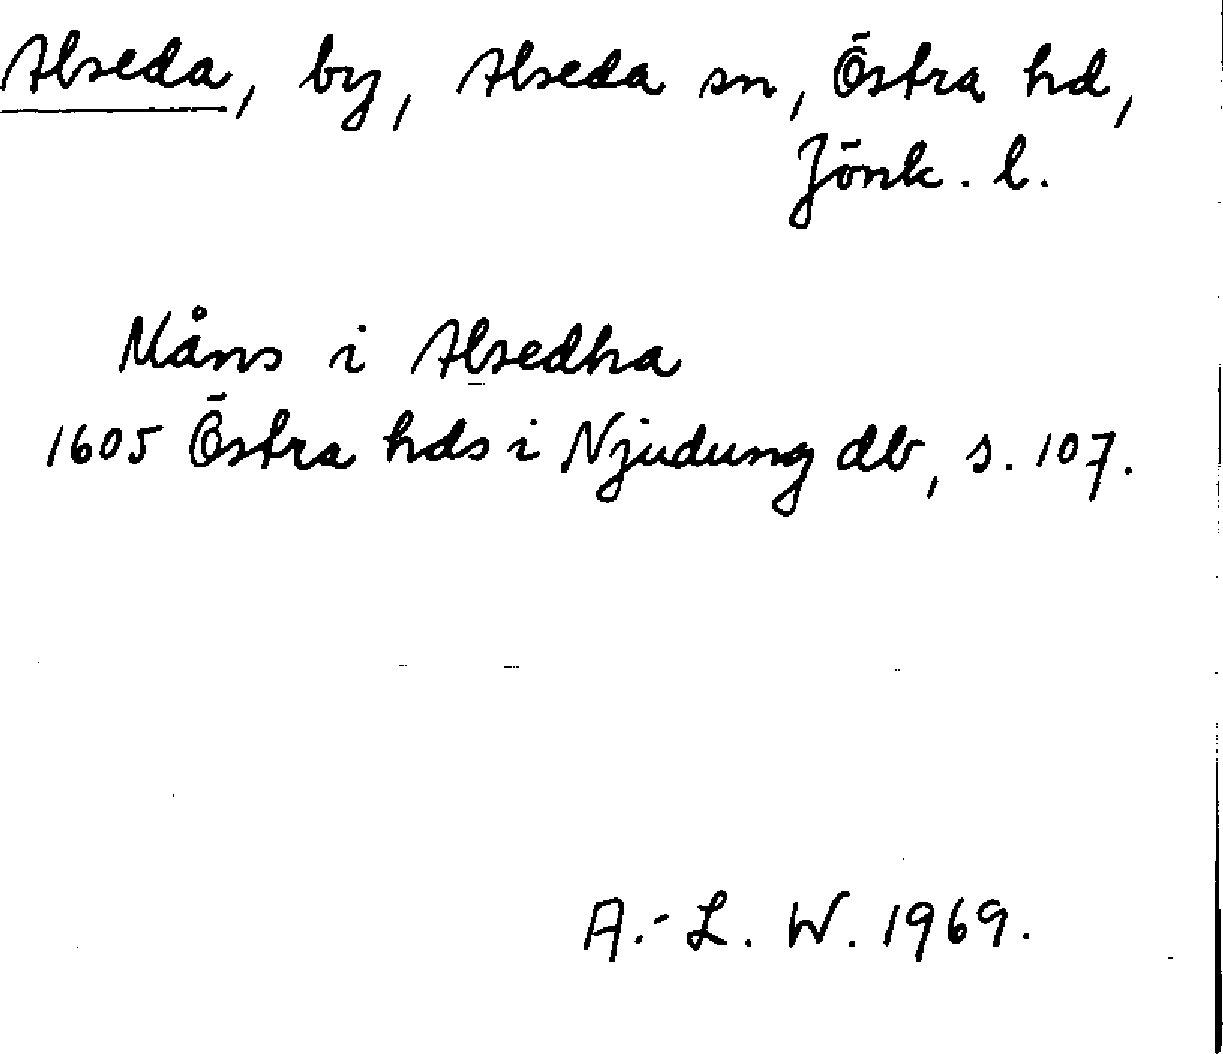 Alseda, by, Alseda sn, Östra hd,
Jönk. l.
Måns i Alsedha
1605 Östra hds i Njudung db, s. 107.
A.-L. W. 1969.